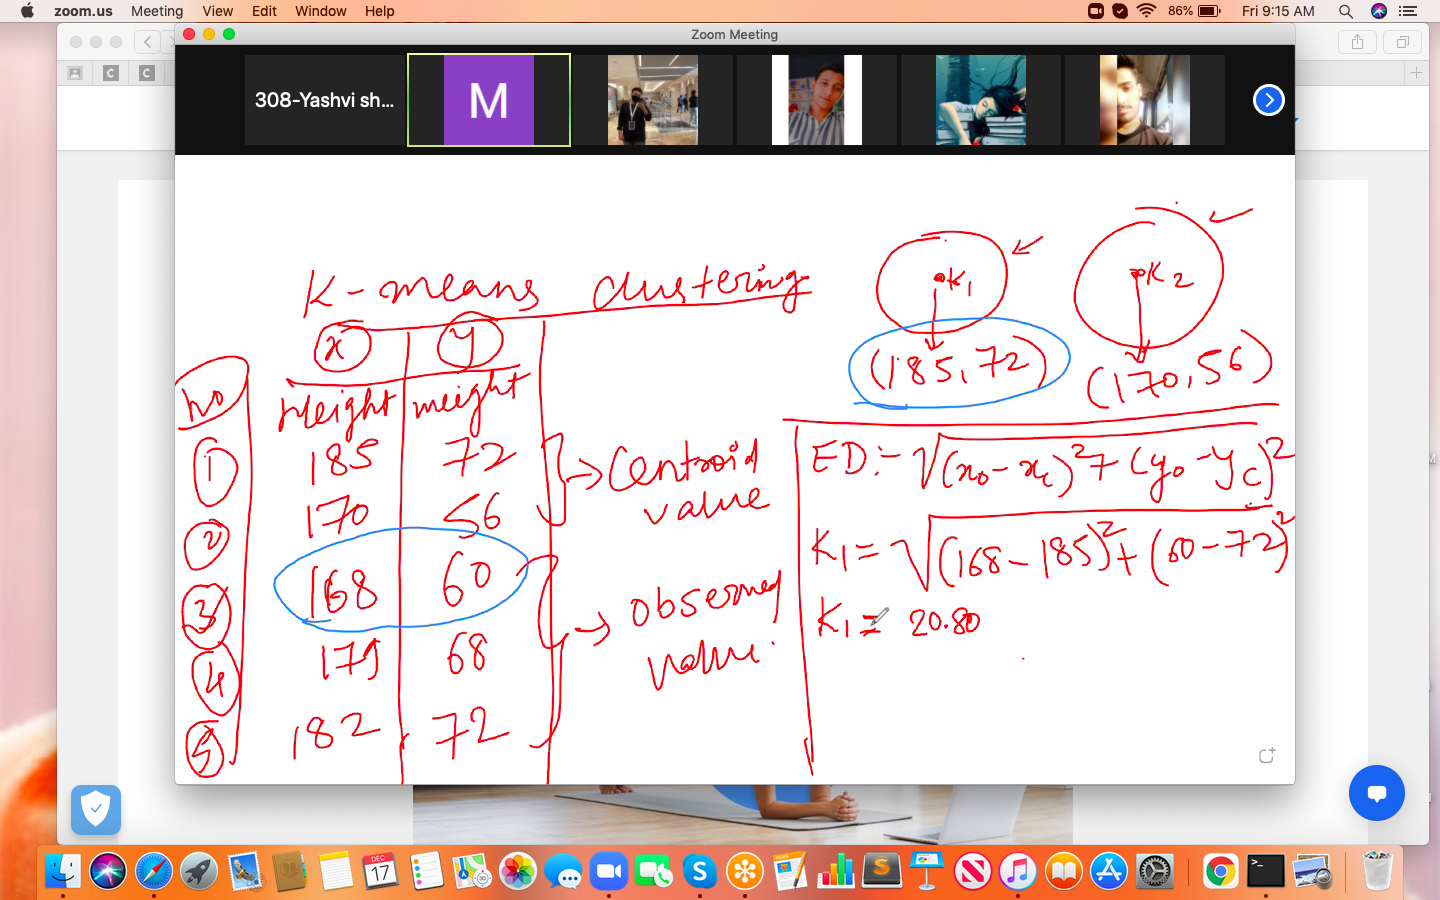 zoom.us Meeting View Edit Window Help 86% Fri 9:15 AM
Zoom Meeting
308-Yashvi sh...
M
K-means clustering
K1
K2
(185,72)
(170,56)
x y
no Height weight
1 185 72
2 170 56
3 168 60
4 179 68
5 182 72
Centroid
value
observed
value.
ED:- √(x₀-x꜀)²+(y₀-y꜀)²
K1 = √(168-185)²+(60-72)²
K1 = 20.80
DEC
17